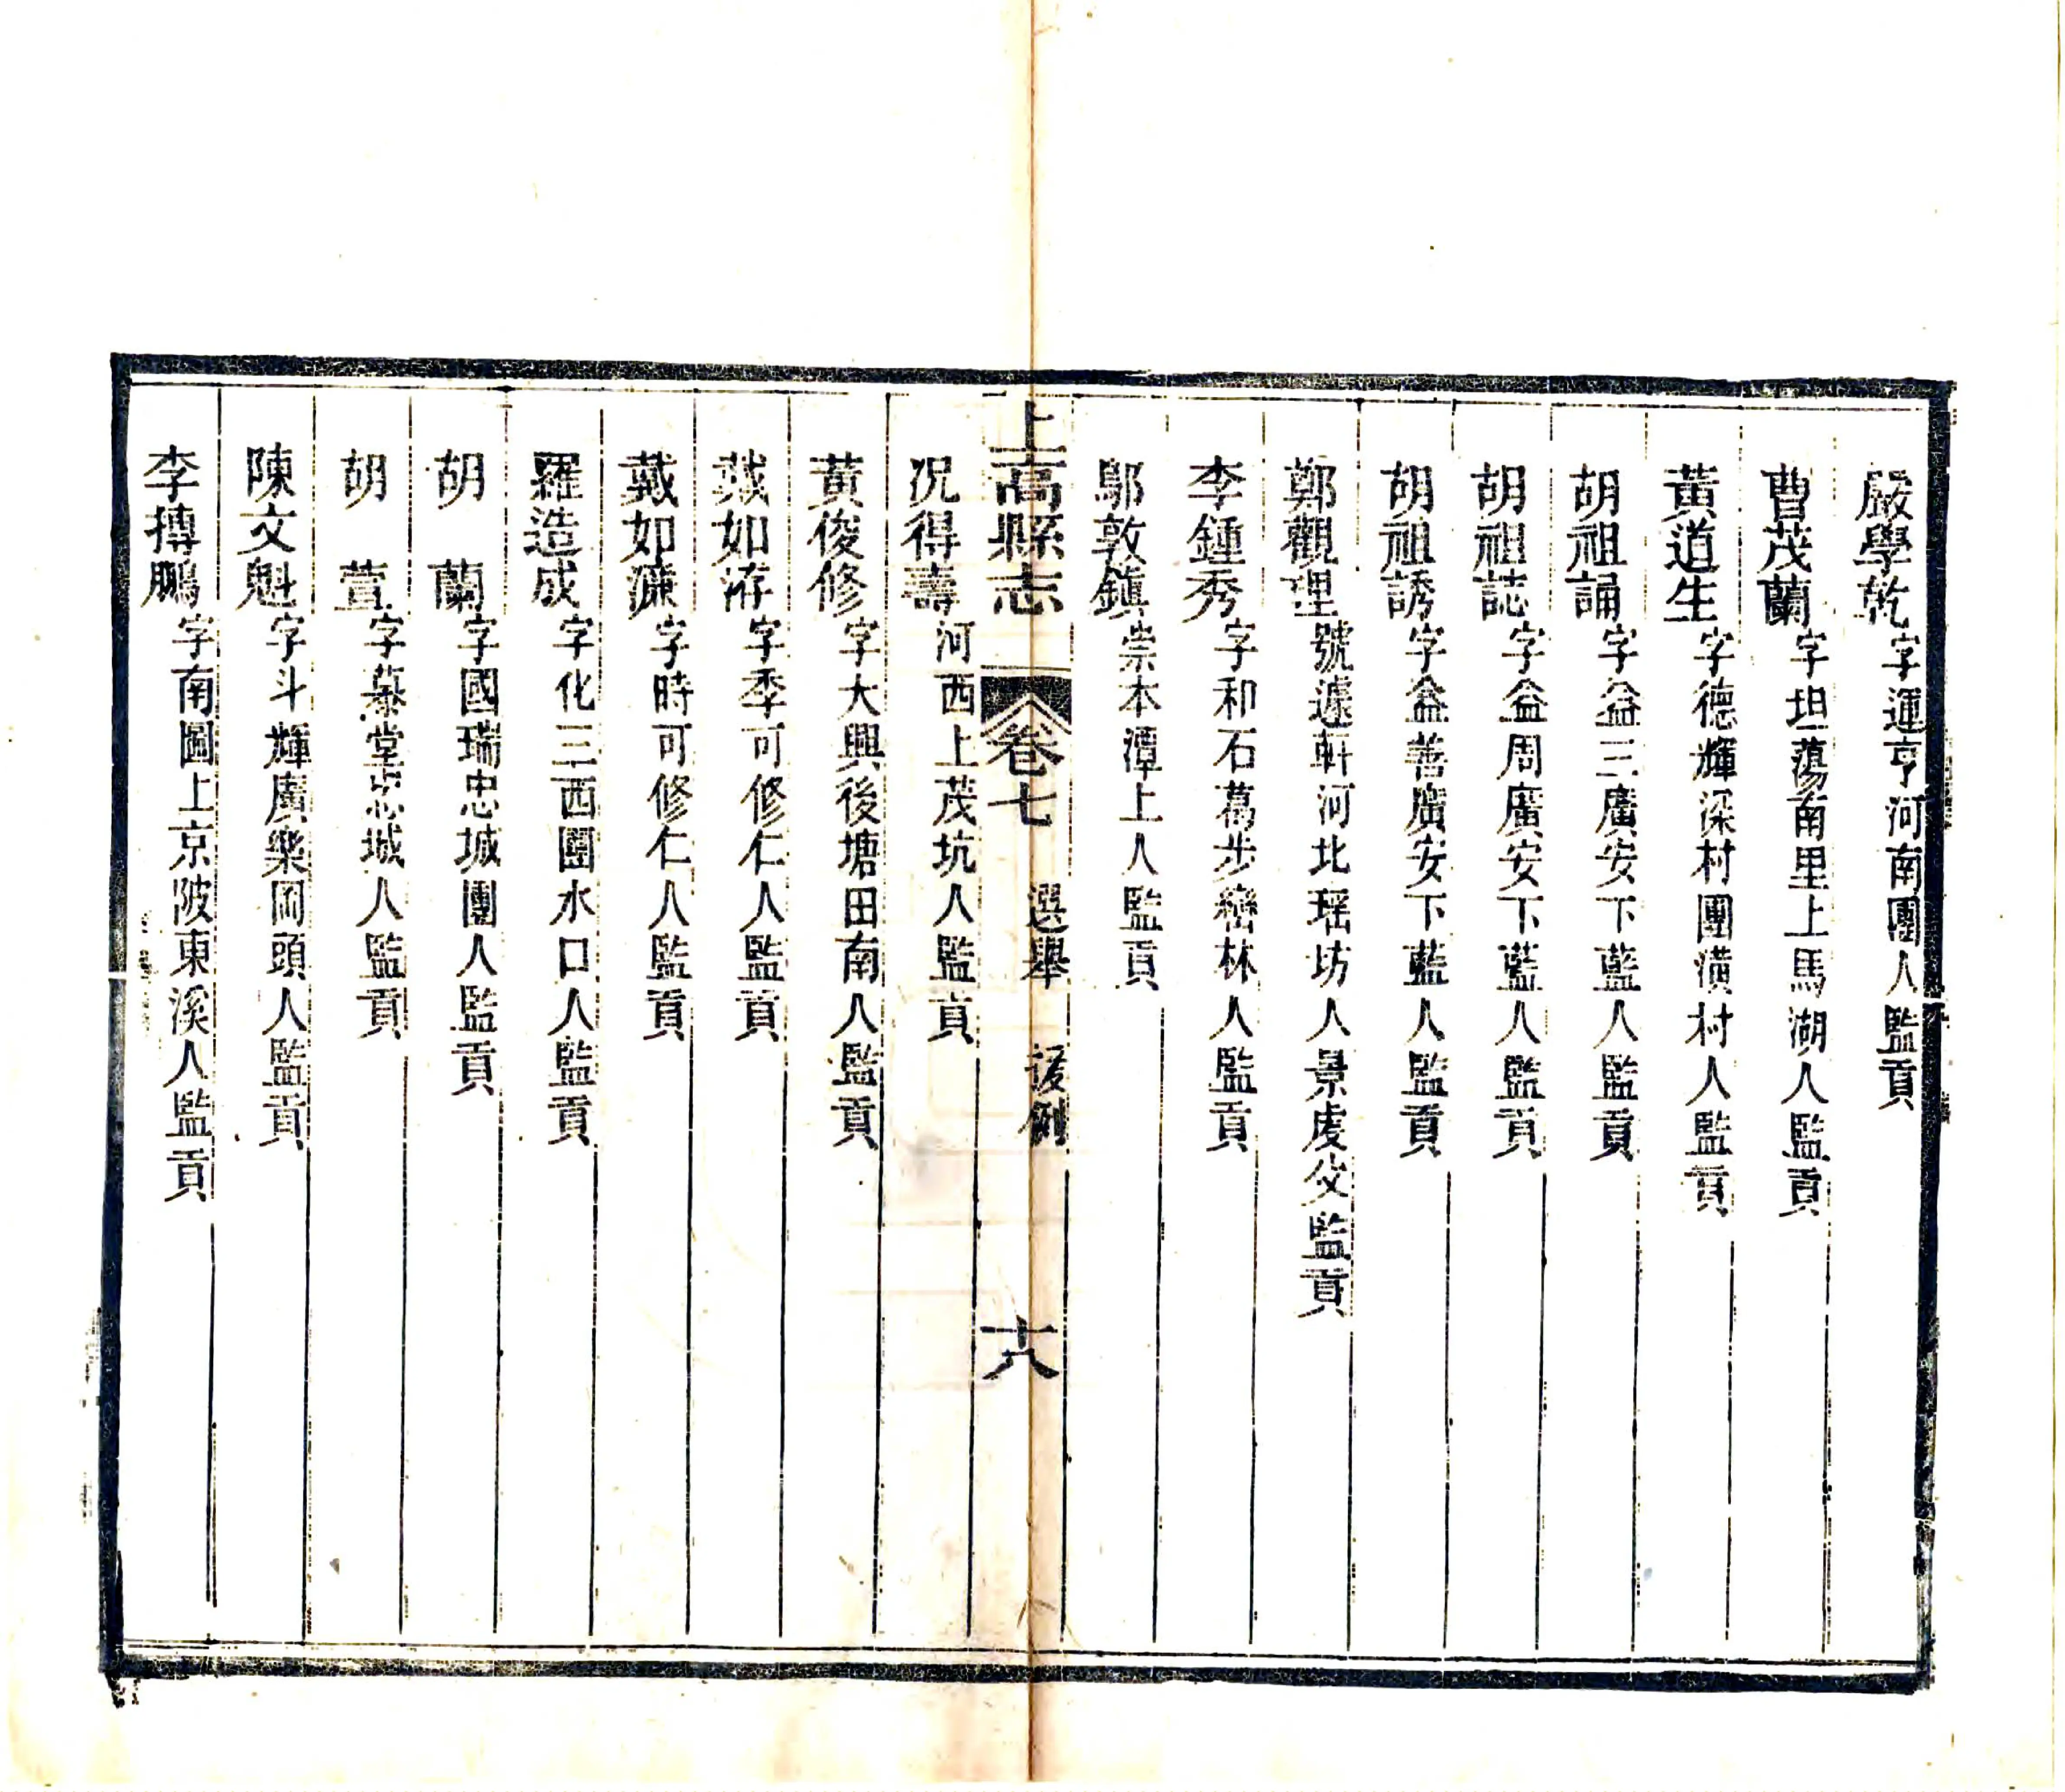 嚴學乾字運亨河南團人監貢
曹茂蘭字坦蕩南里上馬湖人監貢
黃道生字德輝深村團潢村人監貢
胡祖誦字益三廣安下藍人監貢
胡祖誌字益周廣安下藍人監貢
胡祖誘字益善廣安下藍人監貢
鄭觀理號遽軒河北瑶坊人景虔父監貢
李鍾秀字和石葛步巒林人監貢
鄔敦鎮崇本潭上人監貢
上高縣志 卷七 選舉 援例 十八
况得壽河西上茂坑人監貢
黃俊修字大興後塘田南人監貢
戴如洊字季可修仁人監貢
戴如濂字時可修仁人監貢
羅造成字化三西團水口人監貢
胡蘭字國瑞忠城團人監貢
胡萱字慕堂忠城人監貢
陳文魁字斗輝廣樂岡頭人監貢
李摶鵬字南圖上京陂東溪人監貢